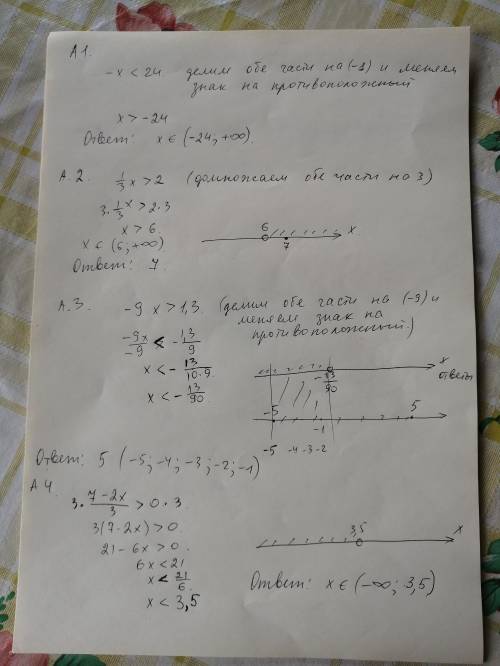 А1.
-x < 24 делим обе части на (-1) и меняем
знак на противоположный
x > -24
Ответ: x ∈ (-24, +∞).
А.2. 1/3 x > 2 (домножаем обе части на 3)
3 · 1/3 x > 2 · 3
x > 6.
x ∈ (6; +∞)
6 7 x
Ответ: 7
А.3. -9x > 1,3. (делим обе части на (-9) и
меняем знак на
противоположный.)
-9x/-9 < -1,3/9
x < -13/10·9
x < -13/90
-13/90 x
ответы
-5 -1 5
-5 -4 -3 -2
Ответ: 5 (-5; -4; -3; -2; -1)
А4.
3 · 7-2x/3 > 0 · 3
3(7-2x) > 0
21 - 6x > 0
6x < 21
x < 21/6
x < 3,5
3,5 x
Ответ: x ∈ (-∞; 3,5)